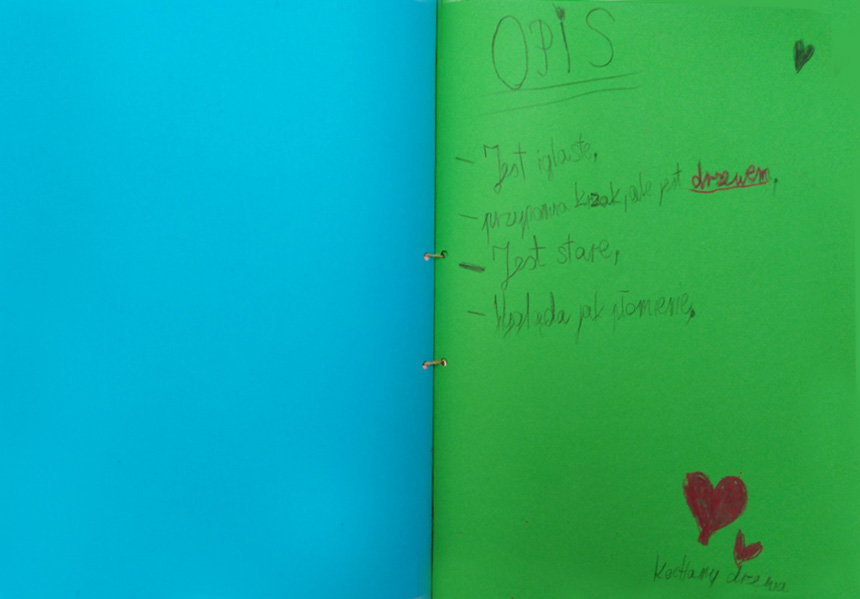 OPIS
- Jest iglaste,
- przypomina krzak, ale jest drzewem,
- Jest stare,
- Wygląda jak płomienie,
Kochamy drzewa